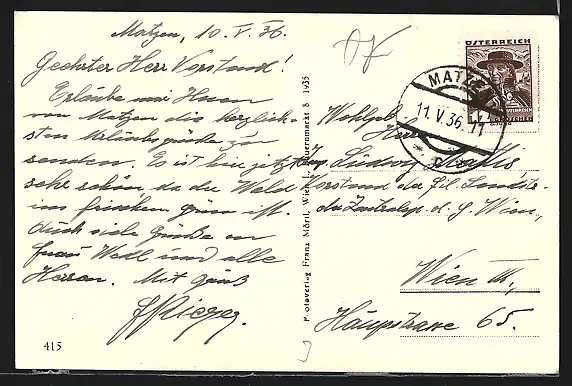 Matzen, 10. V. 36.
Geehrter Herr Vorstand!
Erlaube mir Ihnen
von Matzen die herzlich-
sten Urlaubsgrüße zu
senden. Es ist hier jetzt
sehr schön, da die Wald
im frischen grün ist.
Auch viele Grüße an
Frau Wetl und alle
Herren. Mit Gruß
415
Photoverlag Franz Mörtl, Wien I., Bauernmarkt 8 1935
ÖSTERREICH
MATZEN
11.V.36.11
Wohlgeb.
Herrn
Ludwig
Vorstand der fil. Landstr.
der Zentralsp. d. G. Wien,
Wien III,
Hauptstrasse 65.